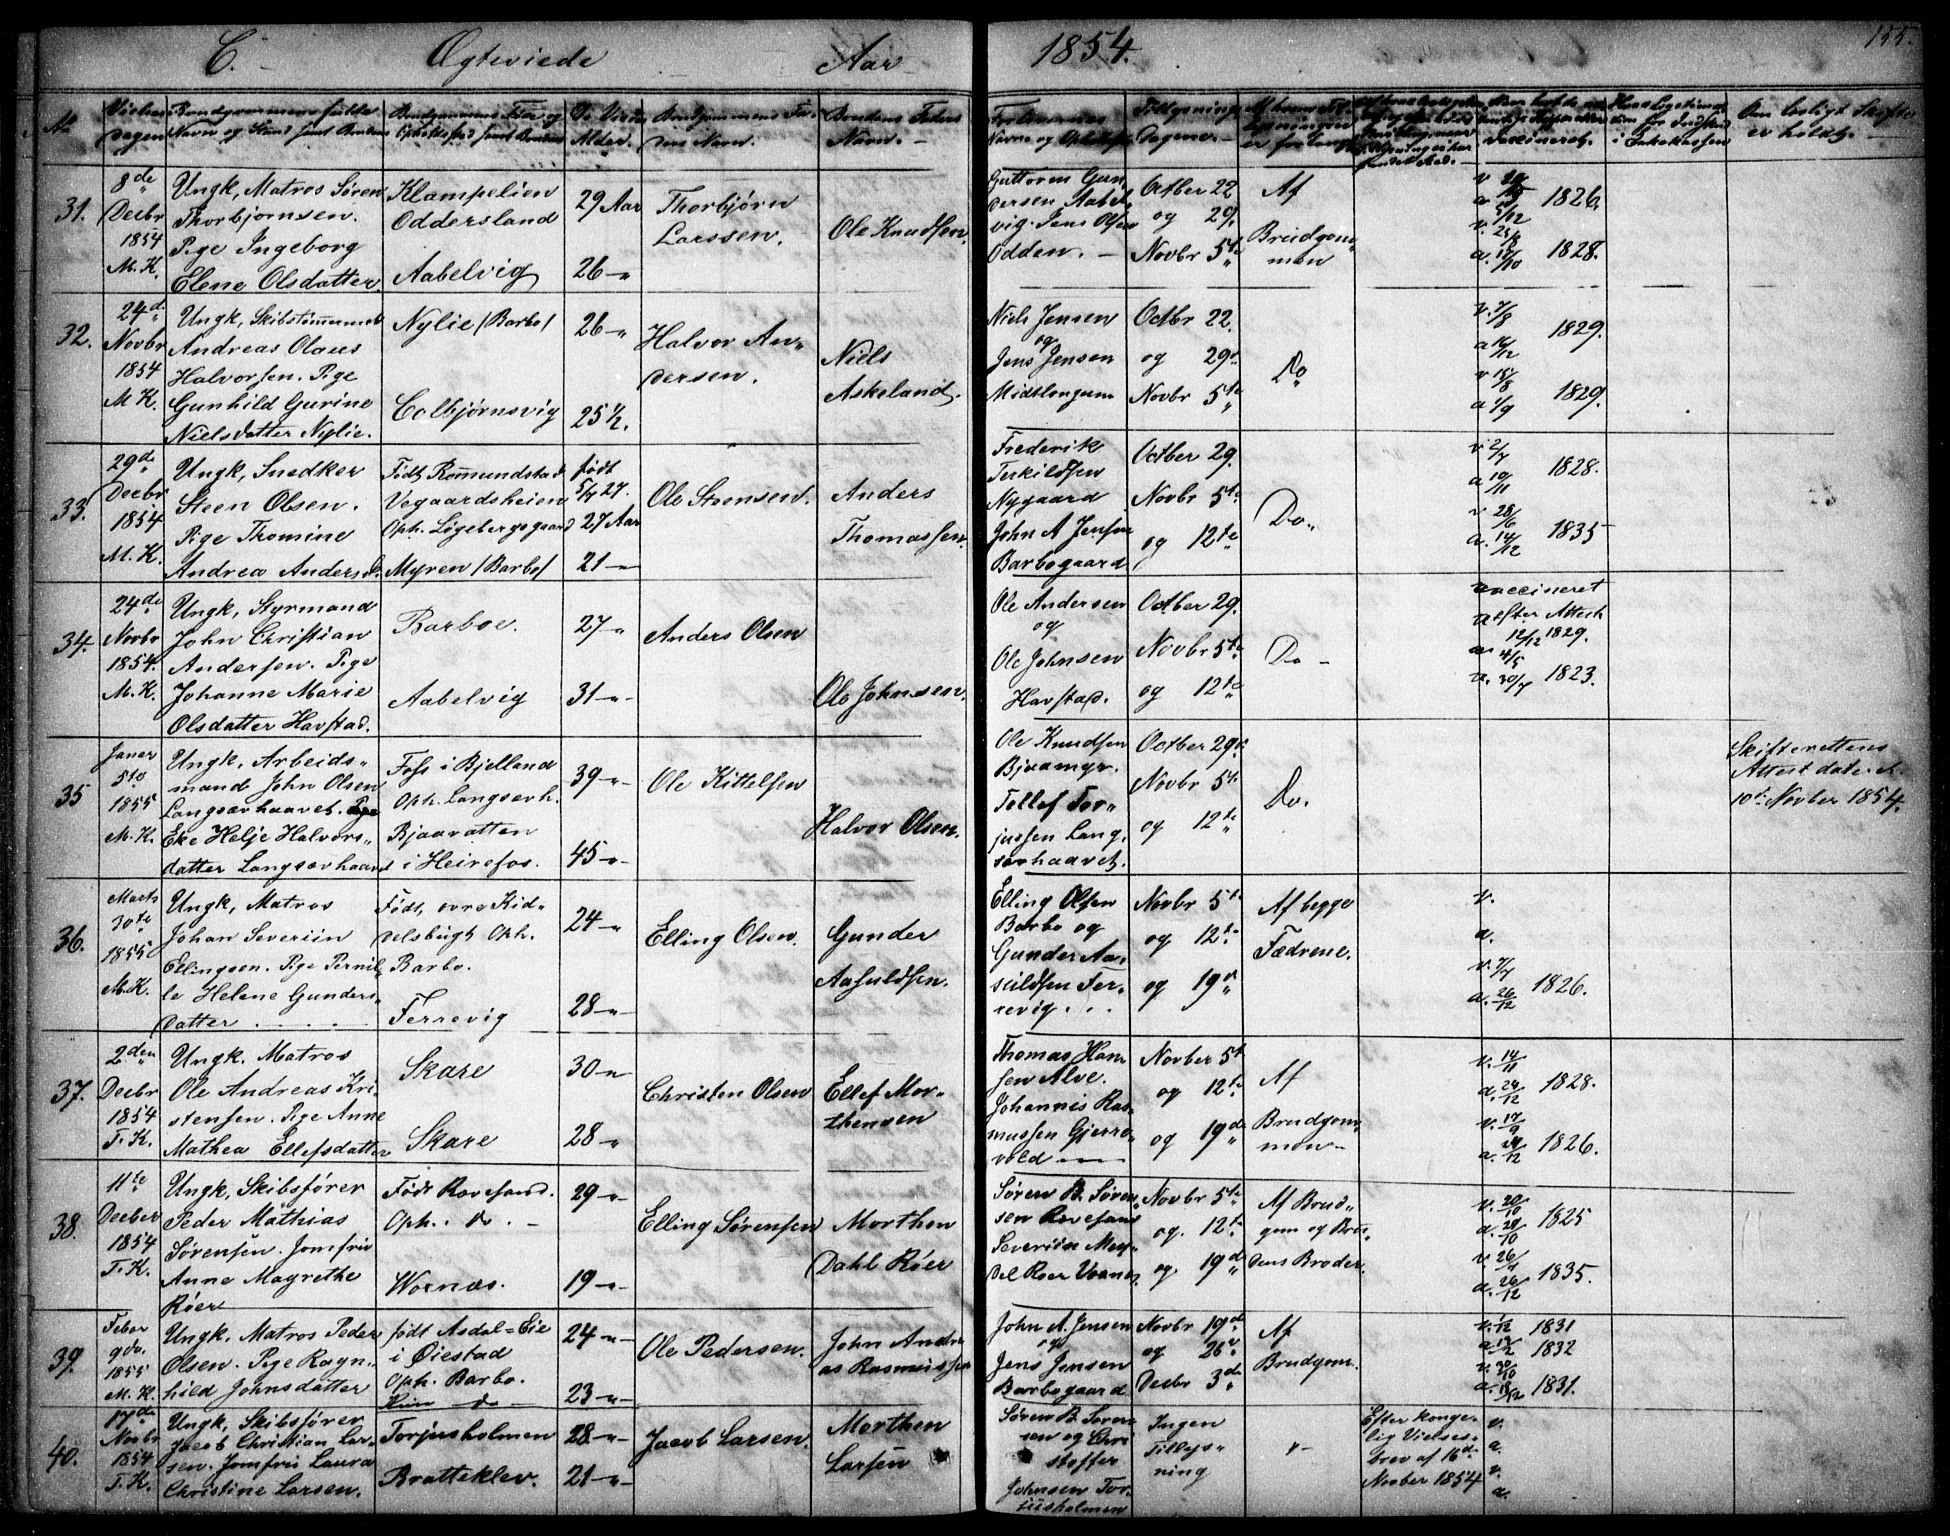 C. Ægteviede Aar 1854. 155.
No Vielses Dagen Brudgommens fulde Navn og Stand samt Brudens Brudgommens Føde og Opholdssted samt Brudens De Viedes Alder. Brudgommens Faders Navn. Brudens Faders Navn.
Forlovernes Navne og Opholdssted Tillysnings Dagene Af hvem Tillysningen er forlangt Om lovligt Skifte er holdt.
31. 8de Decbr 1854 M. K.
Ungk, Matros Søren
Thorbjørnsen.
Pige Ingeborg
Elene Olsdatter.
Klampelien
Oddersland
Aabelvig
29 Aar
26 -"
Thorbjørn
Larssen.
Ole Knudsen.
Guttorm Gun
dersen Aabel
vig. Jens Olsen
Odden. -
Octber 22
og 29.
Novbr 5te
Af
Brudgom
men
1826.
1828.
32. 24de Novbr 1854 M K.
Ungk, Skibstømmermd
Andreas Olaus
Halvorsen. Pige
Gunhild Gurine
Nielsdatter Nylie.
Nylie /Barbo/
Colbjørnsvig
26 -"
25 ½.
Halvor An"
dersen.
Niels
Askeland.
Niels Jensen
og
Jens Jensen
Midtlongum
Octbr 22.
og 29de
Novbr 5te
Do
v. 7/8
1829.
v 15/8
a 1/9
1829.
33. 29de Decbr 1854 M. K.
Ungk, Snedker
Steen Olsen.
Pige Thomine
Andrea Andersd.
Født Romundstad
Vegaardsheien
Oph. Løgebergsgaard
Myren /Barbo/
født
5/7 27.
27 Aar
21 -"
Ole Steensen.
Anders
Thomassen.
Frederik
Terkildsen
Nygaard
John A Jensen
Barbogaard
Octber 29.
Novbr 5te
og 12te
Do"
v 2/7
a 10/11
1828.
v 28/6
a. 14/12
1835
34. 24de Novbr 1854. M. K.
Ungk, Styrmand
John Christian
Andersen. Pige
Johanne Marie
Olsdatter Havstad.
Barboe.
Aabelvig
27 -"
31 -"
Anders Olsen
Ole Johnsen.
Ole Andersen
og
Ole Johnsen
Havstad.
Octber 29.
Novbr 5te
og 12te
Do -
vaccineret
efter Attest
12/12 1829.
4/5
a. 30/7 1823.
35 Janer 5te 1855 M. K.
Ungk, Arbeids"
mand John Olsen
Langsævhaavet. Pige
Eke Helje Halvors"
datter Langsævhaavet
Foss i Bjelland
Oph. Langsævh.
Bjaavatten
i Heirefos.
39 -"
45 -"
Ole Kittelsen
Halvor Olsen.
Ole Knudsen
Bjaamyr.
Tellef Tor"
jussen Lang,
sævhaavet.
Octber 29de
Novbr 5te
og 12te
Do.
Skifterettens
Attest dateret
10de Novber 1854.
36. Marts 30te 1855 M. K.
Ungk, Matros
Johan Severiin
Ellingsen. Pige Pernil
le Helene Gunders"
datter . . . . .
Født, øvre Kid"
delsbugt Oph.
Barbo.
Ferrevig
24 -"
28 -"
Elling Olsen.
Gunder
Aasuldsen.
Elling Olsen
Barbo og
Gunder Aa"
suldsen Fer"
revig. . .
Novbr 5te
og 12te
og 19de
Af begge
Fædrene.
v.
a.
v. 7/7
a. 26/12
1826.
37. 2den Decbr 1854 T. K.
Ungk. Matros
Ole Andreas Kri
stensen. Pige Anne
Mathea Ellefsdatter
Skare
Skare
30 -"
28 -"
Christen Olsen
Ellef Mor"
thensen
Thomas Han
sen Alve.
Johannis Ras"
mussen Gjerre"
vold
Novber 5te
og 12te
og 19de
Af
Brudgom
men -
v. 14/11
a. 24/12
1828.
v. 17/9
1826.
38. 11te Decber 1854 T. K.
Ungk, Skibsfører
Peder Mathias
Sørensen. Jomfru
Anne Magrethe
Röer
Født Rævesand.
Oph. do. -
Wornæs.
29 -"
19 -"
Elling Sørensen
Morthen
Dahl Röer
Søren B. Søren"
sen Revesand
Severiin Men"
del Roer Vornæs
Novbr 5te
og. 12te
og 19de
Af Brud"
gom og Bru"
dens Broder.
v. 20/10
1825
v. 26/7
a. 26/12
1835.
39. Febar 9de. 1855 M. K.
Ungk, Matros Peder
Olsen. Pige Ragn"
hild Johnsdatter
født Asdal=Eie
i Øiestad
Oph. Barbo.
Hun do -
24 -"
23 -"
Ole Pedersen.
John Andre
as Rasmussen
John A. Jensen
og
Jens Jensen
Barbogaard
Novbr 19de
og 26de
Decbr 3de
Af
Brudgom.
1831
1832
1831.
40. 17de Novbr 1854 T. K.
Ungk, Skibsfører
Jacob Christian Lar"
sen. Jomfru Laura
Christine Larsen.
Torjusholmen
Bratteklev.
28 -"
21 -"
Jacob Larsen.
Morthen
Larsen
Søren B. Søren
sen og Chri
stoffer
Johnsen Tor"
jusholmen
Ingen
Tillys"
ning
"-
Efter konge"
lig Vielses"
brev af 16de
Novber 1854
v.
a.
v.
a.